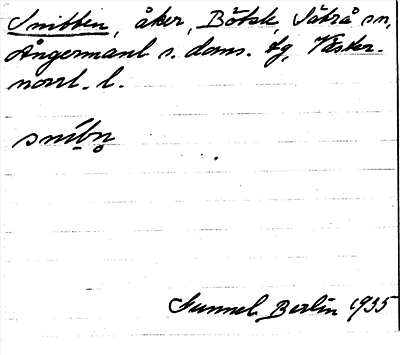 Snibben, åker, Bölsk, Säbrå sn,
Ångermanl. s. doms. tg, Väster-
norrl. l.
snibn̥
Gunnel Berlin 1935